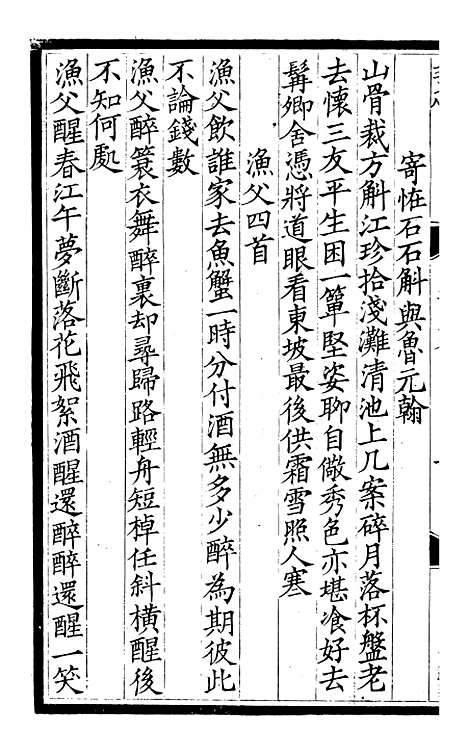 寄怪石石斛與魯元翰
山骨裁方斛江珍拾淺灘清池上几案碎月落杯盤老
去懷三友平生困一簞堅姿聊自儆秀色亦堪飡好去
髯卿舍憑將道眼看東坡最後供霜雪照人寒
漁父四首
漁父飲誰家去魚蟹一時分付酒無多少醉為期彼此
不論錢數
漁父醉蓑衣舞醉裏却尋歸路輕舟短棹任斜橫醒後
不知何處
漁父醒春江午夢斷落花飛絮酒醒還醉醉還醒一笑